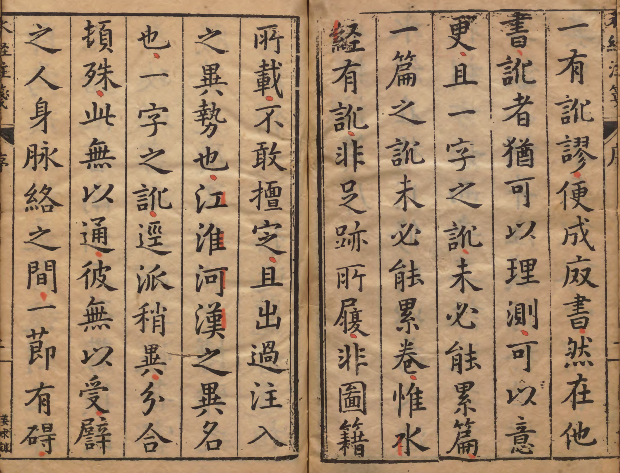 一有訛謬便成廢書然在他
書訛者猶可以理測可以意
更且一字之訛未必能累篇
一篇之訛未必能累卷惟水
経有訛非足跡所履非圖籍
所載不敢擅定且出過注入
之異勢也江淮河漢之異名
也一字之訛逕派稍異分合
頓殊此無以通彼無以受譬
之人身脉絡之間一節有碍
水經注箋
序